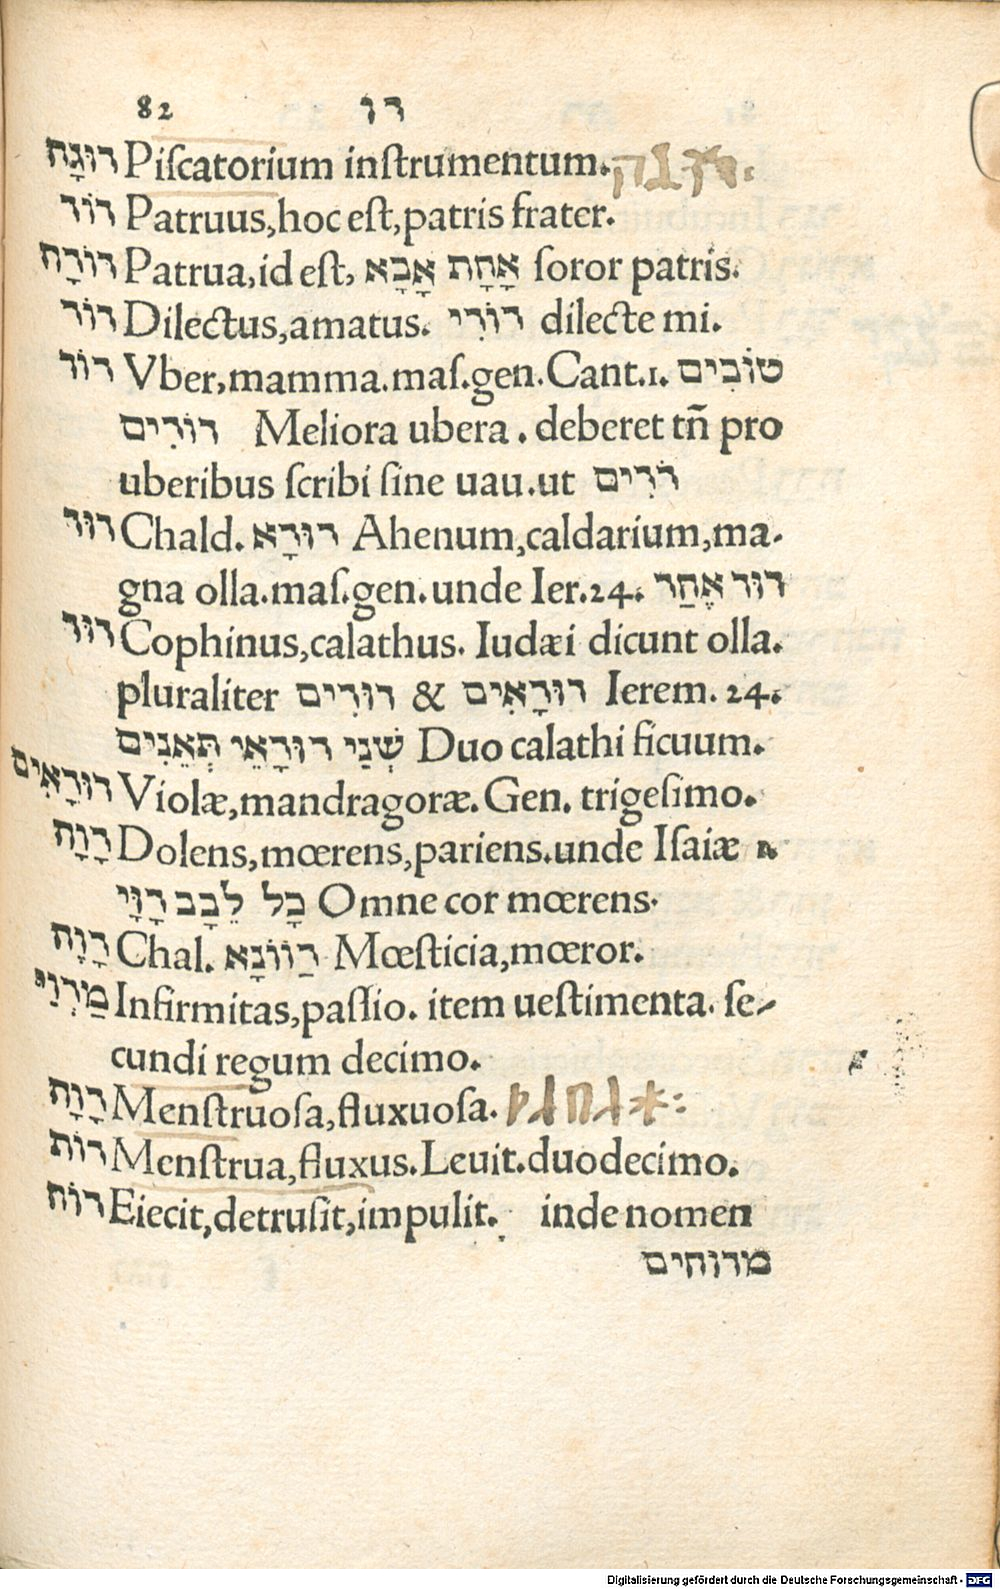 82 דו
דוּגָה Piſcatorium inſtrumentum.
דוֹד Patruus, hoc eſt, patris frater.
דוֹדָה Patrua, id eſt, אֲחָת אָבָא ſoror patris.
דוֹד Dilectus, amatus. דוֹדִי dilecte mi.
דוֹד Vber, mamma. maſ. gen. Cant. 1. טוֹבִים
דוֹדִים Meliora ubera. deberet tñ pro
uberibus ſcribi ſine uau. ut דֹדִים
דוּד Chald. דוּדָא Ahenum, caldarium, ma-
gna olla. maſ. gen. unde Ier. 24. דוּד אֶחַד
דוּד Cophinus, calathus. Iudæi dicunt olla.
pluraliter דוּדִים & דוּדָאִים Ierem. 24.
שְׁנַי דוּדָאֵי תְּאֵנִים Duo calathi ficuum.
דוּדָאִים Violæ, mandragoræ. Gen. trigeſimo.
דָוָה Dolens, mœrens, pariens. unde Iſaiæ
כָל לֵבָב דָוָּי Omne cor mœrens.
דָוָה Chal. דַווֹנָא Mœſticia, mœror.
מַדְוַי Infirmitas, paſſio. item ueſtimenta. ſe-
cundi regum decimo.
דָוָה Menſtruoſa, fluxuoſa.
דוֹת Menſtrua, fluxus. Leuit. duodecimo.
דוֹח Eiecit, detruſit, impulit. inde nomen
מדוחים
Digitalisierung gefördert durch die Deutsche Forschungsgemeinschaft - DFG